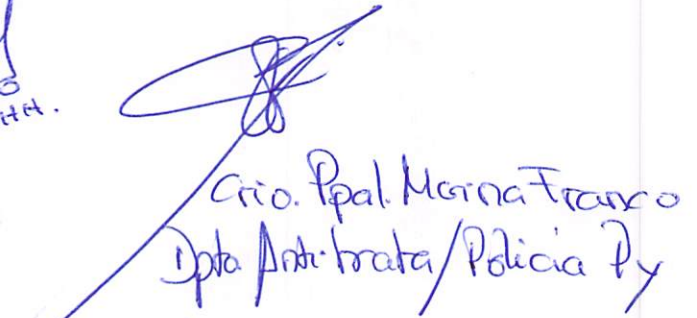 Crio. Ppal. Marina Franco
Dpto Antitrata/Policia Py